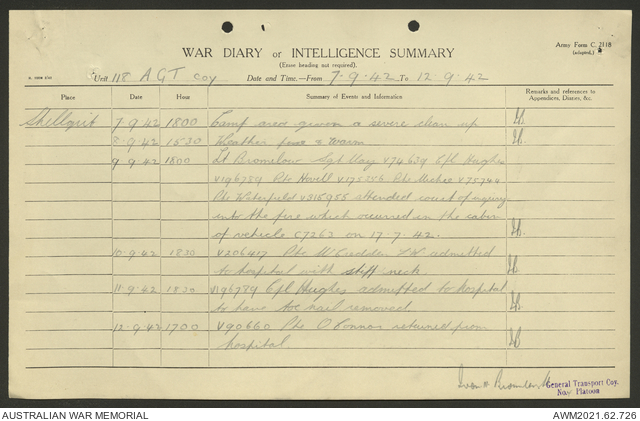 WAR DIARY or INTELLIGENCE SUMMARY
Army Form C. 2118
(adapted.)
(Erase heading not required).
Unit 118 A G T Coy Date and Time.—From 7.9.42 To 12.9.42
Place Date Hour Summary of Events and Information Remarks and references to
Appendices, Diaries, &c.
Shellgrit 7.9.42 1800 Camp area given a severe clean up
8.9.42 1530 Weather fine & warm
9.9.42 1800 Lt Bromilow Sgt Vay V74639 Cpl Hughes
V196789 Pte Hovell V175256 Pte Michie V75744
Pte Waterfield V315955 attended court of inquiry
into the fire which occurred in the cabin
of vehicle C7263 on 17.7.42.
10.9.42 1830 V206417 Pte admitted
to hospital with stiff neck
11.9.42 1830 V196789 Cpl Hughes admitted to hospital
to have toe nail removed
12.9.42 1700 V90660 Pte O'Connor returned from
hospital
General Transport Coy.
Platoon
AUSTRALIAN WAR MEMORIAL
AWM2021.62.726